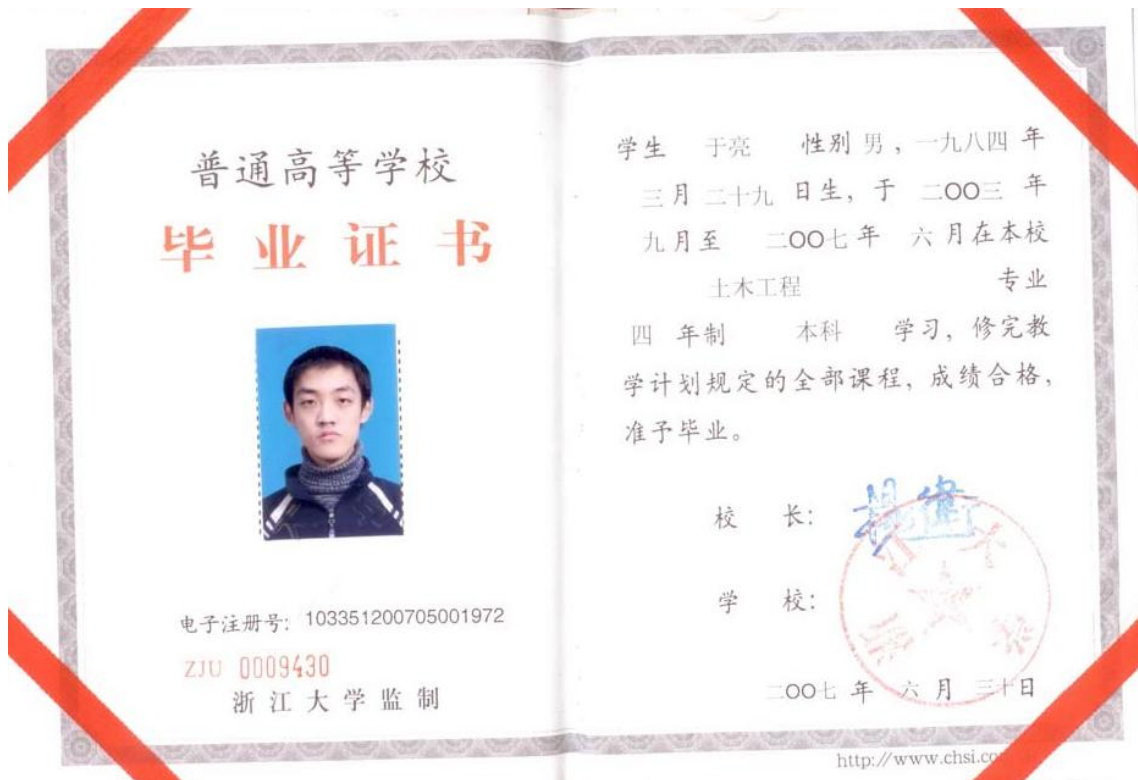 普通高等学校
毕业证书
电子注册号: 103351200705001972
ZJU 0009430
浙江大学监制
学生 于亮 性别 男, 一九八四 年
三月 二十九 日生, 于 二OO三 年
九月至 二OO七年 六月在本校
土木工程 专业
四 年制 本科 学习, 修完教
学计划规定的全部课程, 成绩合格,
准予毕业。
校 长: 杨卫
学 校:
浙江大学
二OO七 年 六月 三十日
http://www.chsi.co